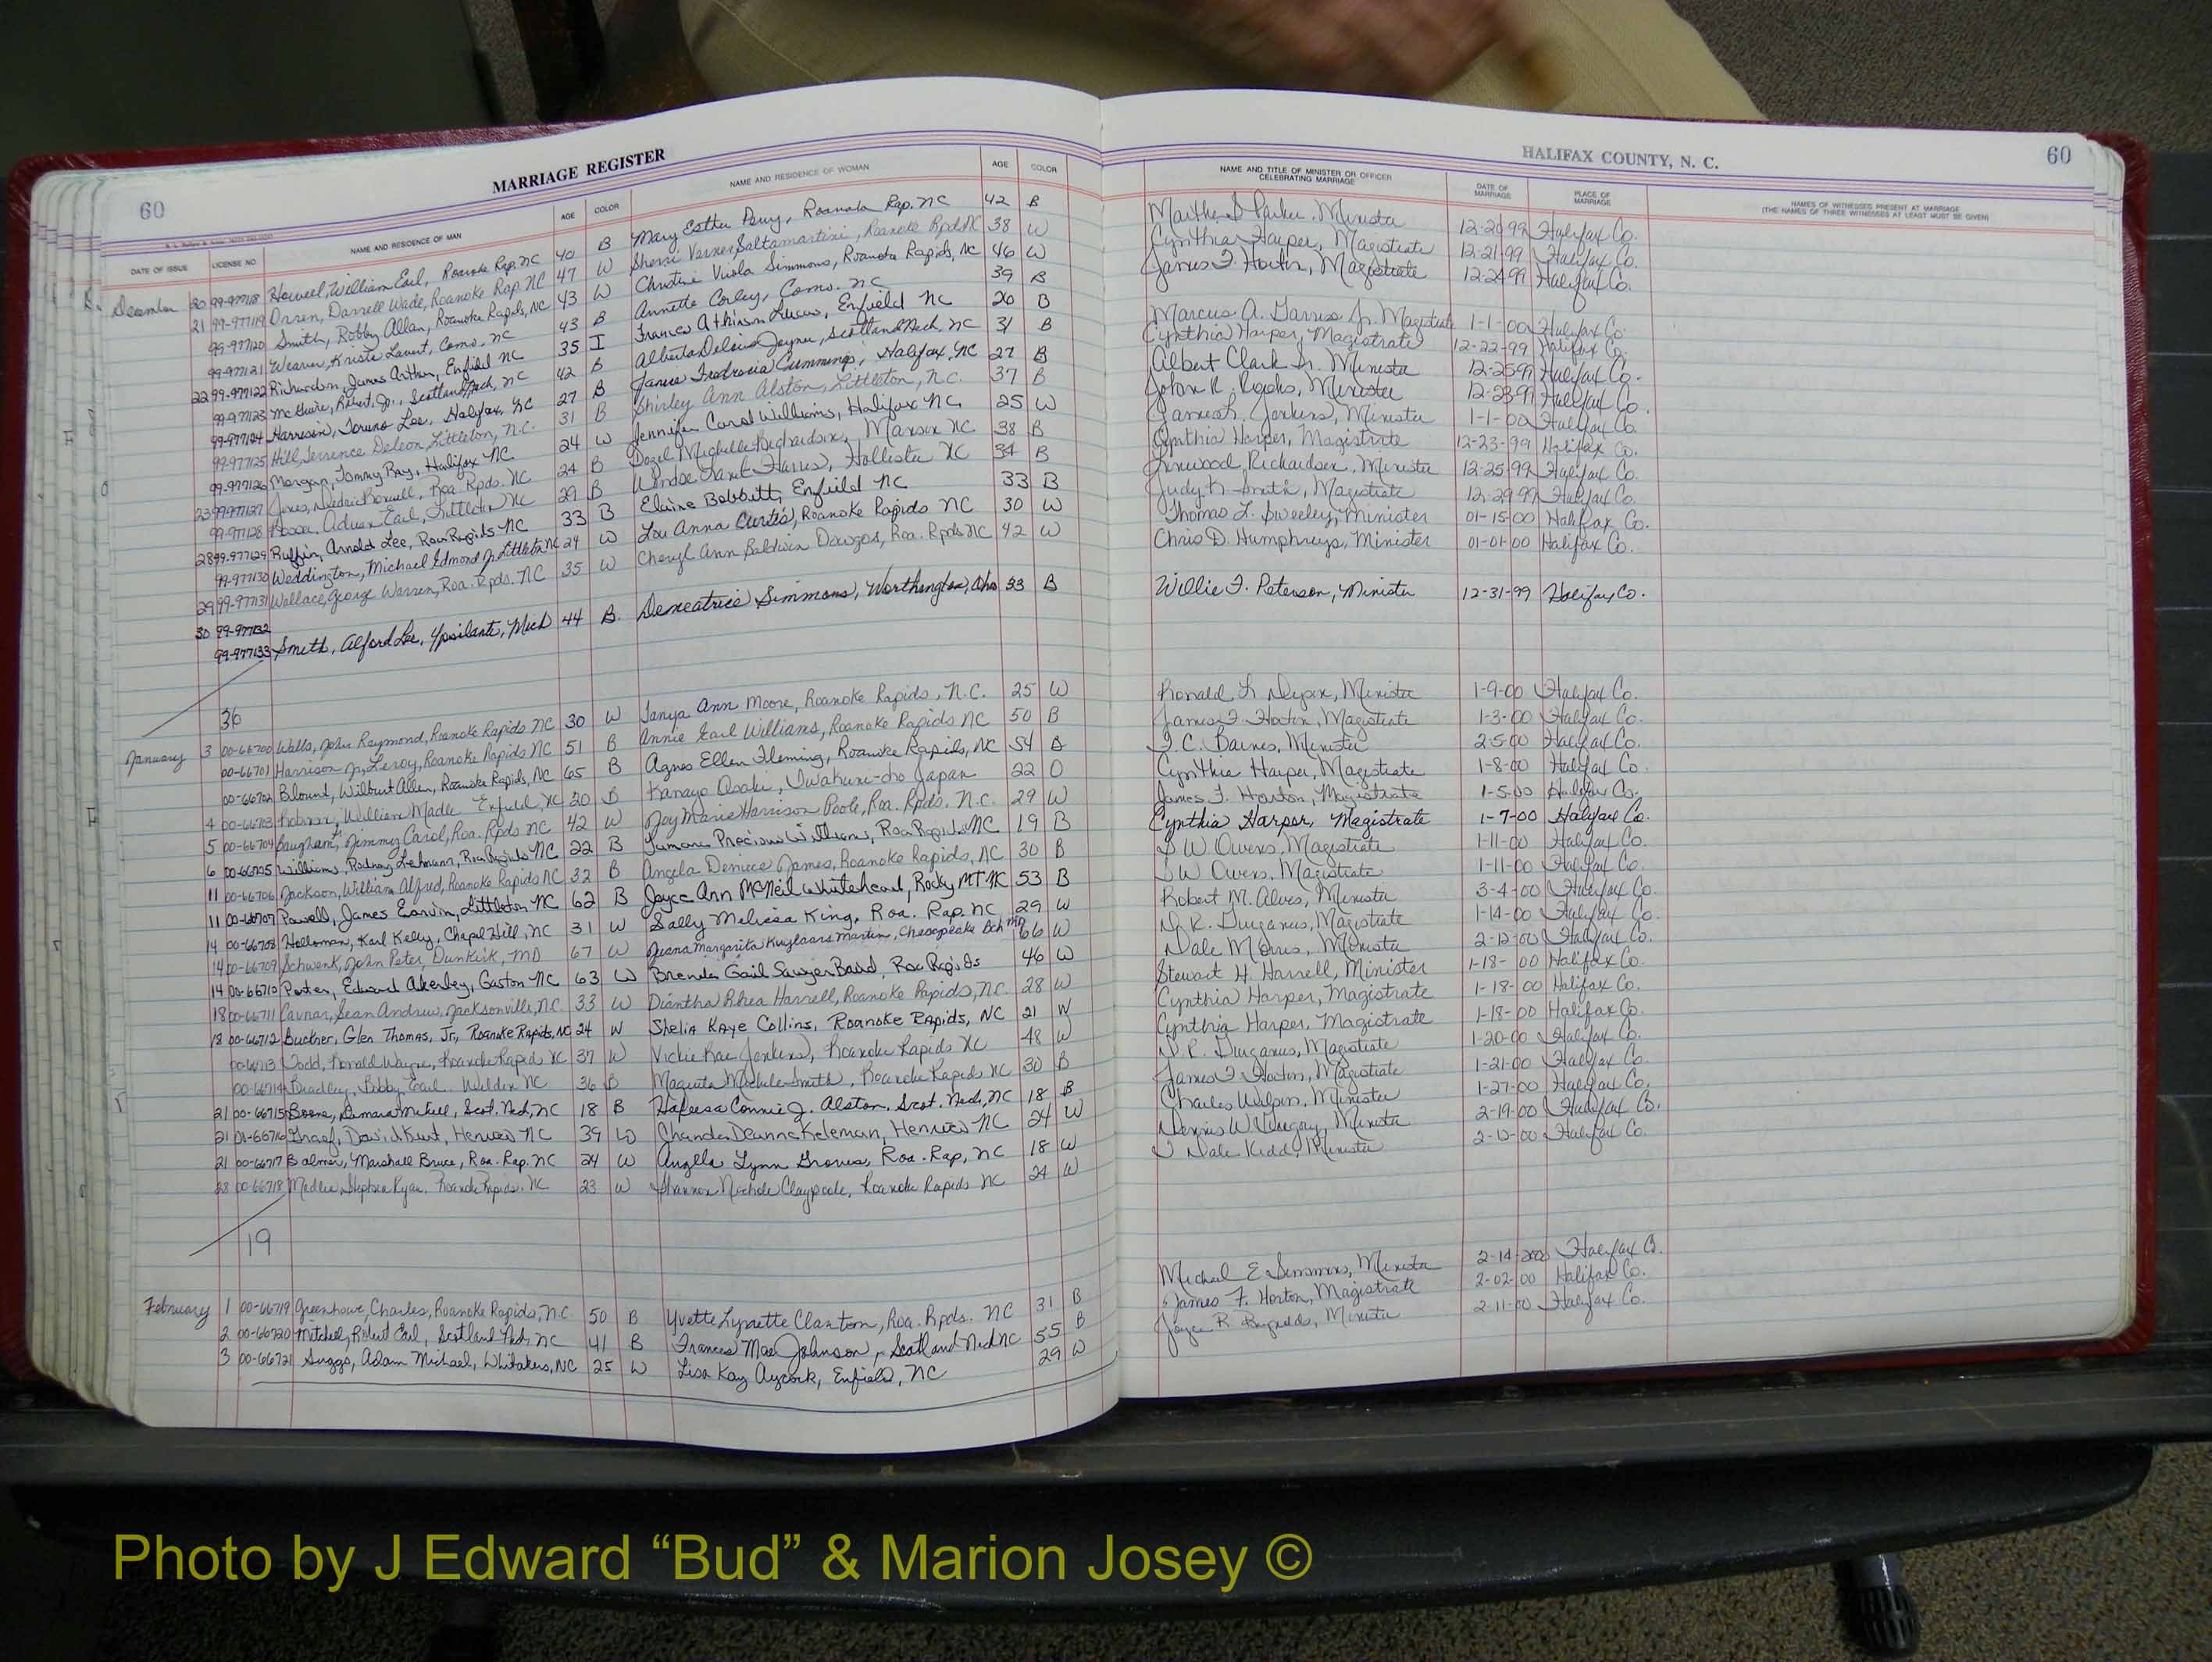 60
MARRIAGE REGISTER
HALIFAX COUNTY, N. C.
60
DATE OF ISSUE LICENSE NO. NAME AND RESIDENCE OF MAN AGE COLOR NAME AND RESIDENCE OF WOMAN AGE COLOR NAME AND TITLE OF MINISTER OR OFFICER CELEBRATING MARRIAGE DATE OF MARRIAGE PLACE OF MARRIAGE NAMES OF WITNESSES PRESENT AT MARRIAGE (THE NAMES OF THREE WITNESSES AT LEAST MUST BE GIVEN)
December 20 99-977118 Howell, William Earl, Roanoke Rap. NC 40 B Mary Esther Perry, Roanoke Rap. NC 42 B Parker, Minister 12-20 99 Halifax Co.
21 99-977119 Orren, Darrell Wade, Roanoke Rap. NC 47 W Sherri Varner Saltamartini, Roanoke Rpds NC 38 W Cynthia Harper, Magistrate 12-21-99 Halifax Co.
99-977120 Smith, Robby Allan, Roanoke Rapids, NC 43 W Christine Viola Simmons, Roanoke Rapids, NC 46 W James F. Horton, Magistrate 12-24 99 Halifax Co.
99-977121 Weaver, Lavert, Como, NC 43 B Annette Corley, Como, NC 39 B Marcus A. Jr. Magistrate 1-1-00 Halifax Co.
22 99-977122 Richardson, James Arthur, Enfield NC 35 I Frances Atkinson Enfield NC 20 B Cynthia Harper, Magistrate 12-22-99 Halifax Co.
99-977123 McGuire, Robert, Jr., Scotland Neck, NC 42 B Alberta Joyner, Scotland Neck, NC 31 B Albert Clark Sr. Minister 12-25 99 Halifax Co.
99-977124 Harrison, Lee, Halifax, NC 27 B Janice Cummings, Halifax, NC 27 B John R. Minister 12-23 99 Halifax Co.
99-977125 Hill, Terrence Deleon, Littleton, N.C. 31 B Shirley Ann Alston, Littleton, N.C. 37 B Jenkins, Minister 1-1-00 Halifax Co.
99-977126 Morgan, Tommy Ray, Halifax NC 24 W Jennifer Carol Williams, Halifax NC 25 W Cynthia Harper, Magistrate 12-23-99 Halifax Co.
23 99-977127 Roa. Rpds. NC 24 B Michelle Richardson, NC 38 B Linwood Richardson, Minister 12-25 99 Halifax Co.
99-977128 Earl, Littleton NC 29 B Hollister NC 34 B Judy N. Smith, Magistrate 12-29 99 Halifax Co.
28 99-977129 Ruffin, Arnold Lee, Roa Rapids NC 33 B Elaine Bobbitt, Enfield NC 33 B Thomas L. Sweeley, Minister 01-15-00 Halifax Co.
99-977130 Weddington, Michael Edmond Jr. Littleton NC 24 W Lou Anna Curtis, Roanoke Rapids NC 30 W Chris D. Humphreys, Minister 01-01-00 Halifax Co.
29 99-977131 Wallace, George Warren, Roa. Rpds. NC 35 W Cheryl Ann Baldwin Roa. Rpds NC 42 W
30 99-977132
99-977133 Smith, Alford Lee, Ypsilanti, Mich 44 B. Simmons, Worthington, Ohio 33 B Willie F. Peterson, Minister 12-31-99 Halifax Co.
36
January 3 00-66700 Walls, John Raymond, Roanoke Rapids NC 30 W Tanya Ann Moore, Roanoke Rapids, N.C. 25 W Ronald L. Minister 1-9-00 Halifax Co.
00-66701 Harrison Jr, Leroy, Roanoke Rapids NC 51 B Annie Earl Williams, Roanoke Rapids NC 50 B James F. Horton, Magistrate 1-3-00 Halifax Co.
00-66702 Blount, Wilbert Allen, Roanoke Rapids, NC 65 B Agnes Ellen Fleming, Roanoke Rapids, NC 54 B Barnes, Minister 2-5-00 Halifax Co.
4 00-66703 William Enfield, NC 20 B Kanayo Osaki, Iwakuni-cho Japan 22 O Cynthia Harper, Magistrate 1-8-00 Halifax Co
5 00-66704 Baugham, Jimmy Carol, Roa. Rpds NC 42 W Joy Marie Harrison Poole, Roa. Rpds. N.C. 29 W James F. Horton, Magistrate 1-5-00 Halifax Co.
6 00-66705 Williams, Rodney Lehmann, Roa Rapids NC 22 B Precious Williams, Roa Rapids NC 19 B Cynthia Harper, Magistrate 1-7-00 Halifax Co.
11 00-66706 Jackson, William Alfred, Roanoke Rapids NC 32 B Angela Deniece James, Roanoke Rapids, NC 30 B W. Owens, Magistrate 1-11-00 Halifax Co.
11 00-66707 Powell, James Earvin, Littleton NC 62 B Joyce Ann McNeil Whitehead, Rocky MT NC 53 B W. Owens, Magistrate 1-11-00 Halifax Co.
14 00-66708 Holloman, Karl Kelly, Chapel Hill, NC 31 W Sally Melissa King, Roa. Rap. NC 29 W Robert M. Alves, Minister 3-4-00 Halifax Co.
14 00-66709 Schwenk, John Peter, Dunkirk, MD 67 W Margarita Martin, Chesapeake Bch MD 66 W Magistrate 1-14-00 Halifax Co.
14 00-66710 Porter, Edward Akerley, Gaston NC 63 W Brenda Gail Sawyer Baird, Roa Rapids 46 W Dale Morris, Minister 2-12-00 Halifax Co.
18 00-66711 Cavnar, Sean Andrew, Jacksonville, N.C. 33 W Diantha Rhea Harrell, Roanoke Rapids, N.C. 28 W Stewart H. Harrell, Minister 1-18-00 Halifax Co.
18 00-66712 Buckner, Glen Thomas, Jr., Roanoke Rapids, NC 24 W Shelia Kaye Collins, Roanoke Rapids, NC 21 W Cynthia Harper, Magistrate 1-18-00 Halifax Co.
00-66713 Todd, Ronald Wayne, Roanoke Rapids NC 37 W Vickie Rae Jenkins, Roanoke Rapids NC 48 W Cynthia Harper, Magistrate 1-18-00 Halifax Co.
00-66714 Bradley, Bobby Earl, Weldon NC 36 B Michele Smith, Roanoke Rapids NC 30 B Magistrate 1-20-00 Halifax Co.
21 00-66715 Boone, Scot. Neck, NC 18 B Connie J. Alston, Scot. Neck, NC 18 B James F. Horton, Magistrate 1-21-00 Halifax Co.
21 00-66716 Graef, David Kurt, Henrico NC 39 W Deanna Keleman, Henrico NC 24 W Charles Minister 1-27-00 Halifax Co.
21 00-66717 Balmer, Marshall Bruce, Roa. Rap. NC 24 W Angella Lynn Groves, Roa. Rap, NC 18 W Dennis W. Minister 2-19-00 Halifax Co.
28 00-66718 Medlin, Stephen Ryan, Roanoke Rapids, NC 23 W Shannon Nichole Claypoole, Roanoke Rapids NC 24 W Dale Kidd, Minister 2-12-00 Halifax Co.
19
February 1 00-66719 Greenhowe, Charles, Roanoke Rapids, N.C. 50 B Yvette Lynette Clanton, Roa. Rpds. NC 31 B Michael E Simmons, Minister 2-14-2000 Halifax Co.
2 00-66720 Mitchell, Robert Earl, Scotland Neck, NC 41 B Frances Mae Johnson, Scotland Neck NC 55 B James F. Horton, Magistrate 2-02-00 Halifax Co.
3 00-66721 Suggs, Adam Michael, Whitakers, NC 25 W Lisa Kay Aycock, Enfield, NC 29 W Joyce R. Reynolds, Minister 2-11-00 Halifax Co.
Photo by J Edward “Bud” & Marion Josey ©